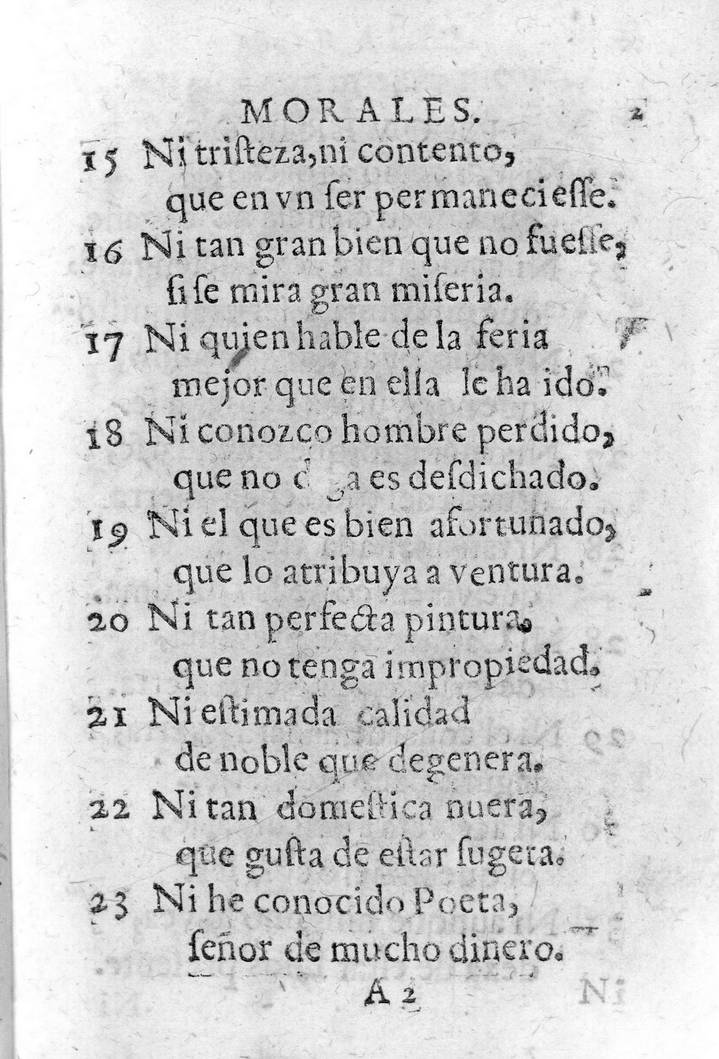 MORALES. 2
15 Ni triſteza, ni contento,
que en vn ſer permanecieſſe.
16 Ni tan gran bien que no fueſſe,
ſi ſe mira gran miſeria.
17 Ni quien hable de la feria
mejor que en ella le ha ido.
18 Ni conozco hombre perdido,
que no es deſdichado.
19 Ni el que es bien afortunado,
que lo atribuya a ventura.
20 Ni tan perfecta pintura,
que no tenga impropiedad.
21 Ni eſtimada calidad
de noble que degenera.
22 Ni tan domeſtica nuera,
que guſta de eſtar ſugeta.
23 Ni he conocido Poeta,
ſeñor de mucho dinero.
A 2